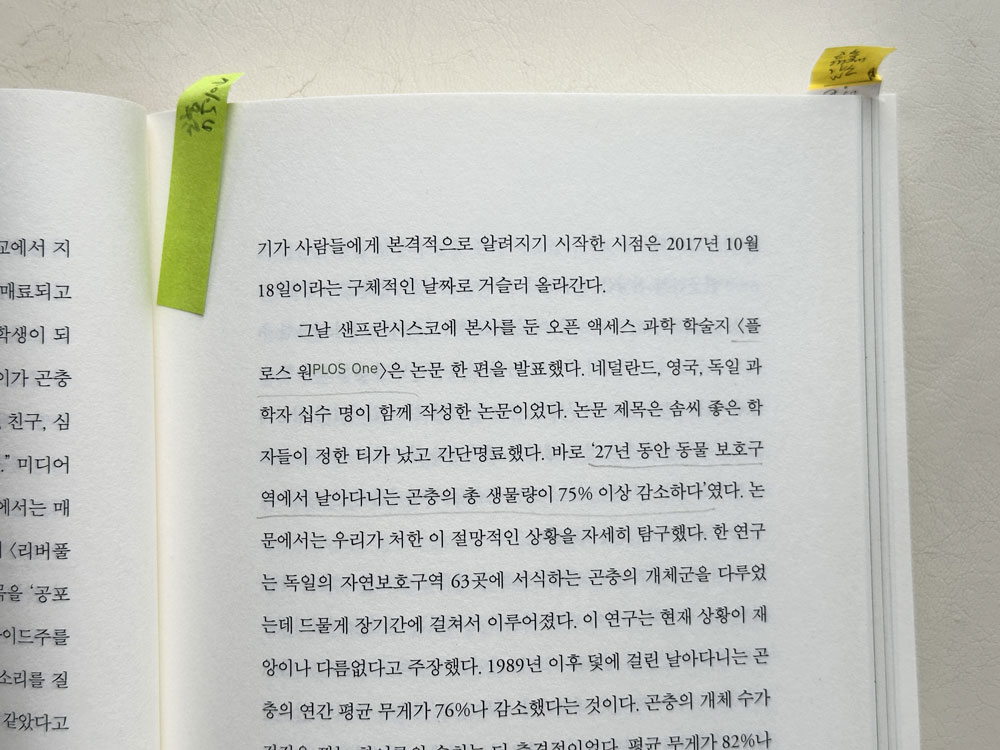 곤충
75%↓
교에서 지
매료되고
학생이 되
이가 곤충
친구, 심
." 미디어
에서는 매
〈리버풀
목을 ‘공포
이드주를
소리를 질
같았다고
기가 사람들에게 본격적으로 알려지기 시작한 시점은 2017년 10월
18일이라는 구체적인 날짜로 거슬러 올라간다.
그날 샌프란시스코에 본사를 둔 오픈 액세스 과학 학술지 〈플
로스 원PLOS One〉은 논문 한 편을 발표했다. 네덜란드, 영국, 독일 과
학자 십수 명이 함께 작성한 논문이었다. 논문 제목은 솜씨 좋은 학
자들이 정한 티가 났고 간단명료했다. 바로 ‘27년 동안 동물 보호구
역에서 날아다니는 곤충의 총 생물량이 75% 이상 감소하다’였다. 논
문에서는 우리가 처한 이 절망적인 상황을 자세히 탐구했다. 한 연구
는 독일의 자연보호구역 63곳에 서식하는 곤충의 개체군을 다루었
는데 드물게 장기간에 걸쳐서 이루어졌다. 이 연구는 현재 상황이 재
앙이나 다름없다고 주장했다. 1989년 이후 덫에 걸린 날아다니는 곤
충의 연간 평균 무게가 76%나 감소했다는 것이다. 곤충의 개체 수가
더 충격적이었다. 평균 무게가 82%나